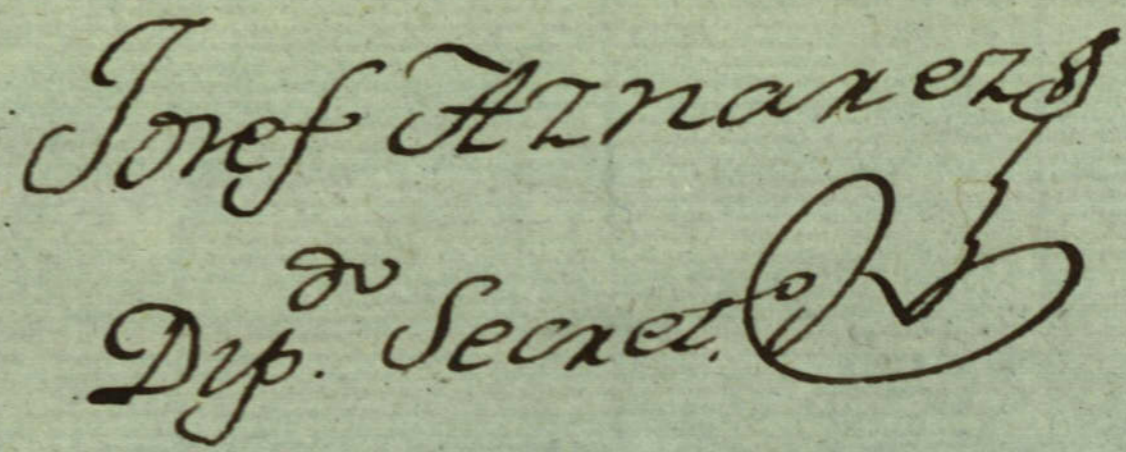 Josef Aznarez
Dip.do Secret.o